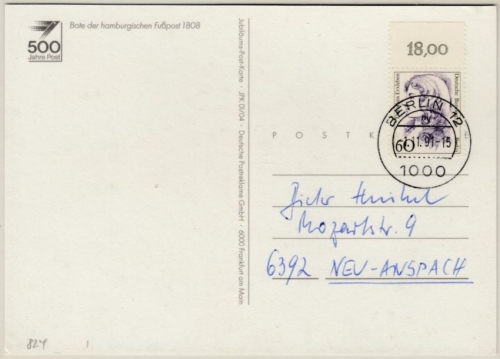 Bote der hamburgischen Fußpost 1808
500
Jahre Post
Jubiläums-Post-Karte · JPK 01/04 · Deutsche Postreklame GmbH · 6000 Frankfurt am Main
18,00
Deutsche
60
BERLIN 12
.11.91-15
1000
POSTK
Mozartstr. 9
6392 NEU-ANSPACH
824